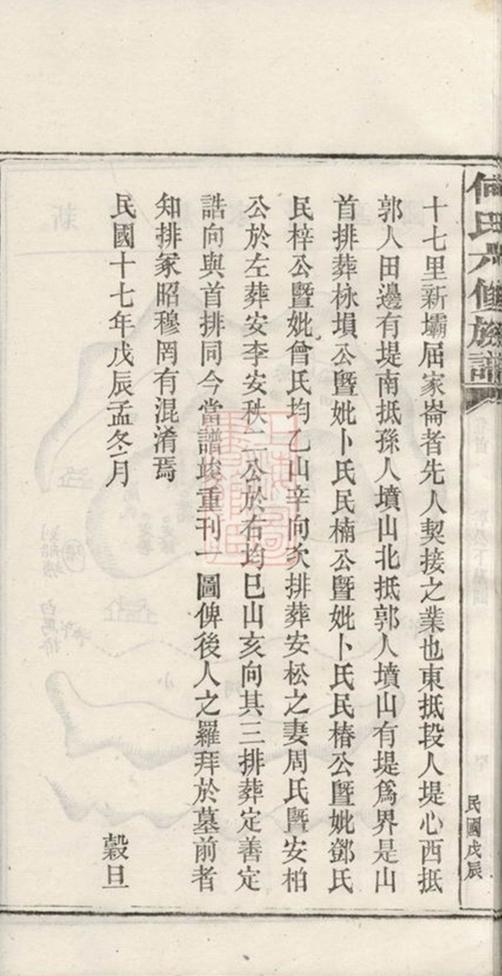 何氏六修族譜
民國戊辰
十七里新壩屈家崙者先人契接之業也東抵段人堤心西抵
郭人田邊有堤南抵孫人墳山北抵郭人墳山有堤爲界是山
首排葬梀塤公暨妣卜氏民楠公暨妣卜氏民椿公暨妣鄧氏
民梓公暨妣曾氏均乙山辛向次排葬安松之妻周氏暨安柏
公於左葬安李安秩二公於右均巳山亥向其三排葬定善定
誥向與首排同今當譜竣重刊一圖俾後人之羅拜於墓前者
知排冢昭穆罔有混淆焉
民國十七年戊辰孟冬月 穀旦